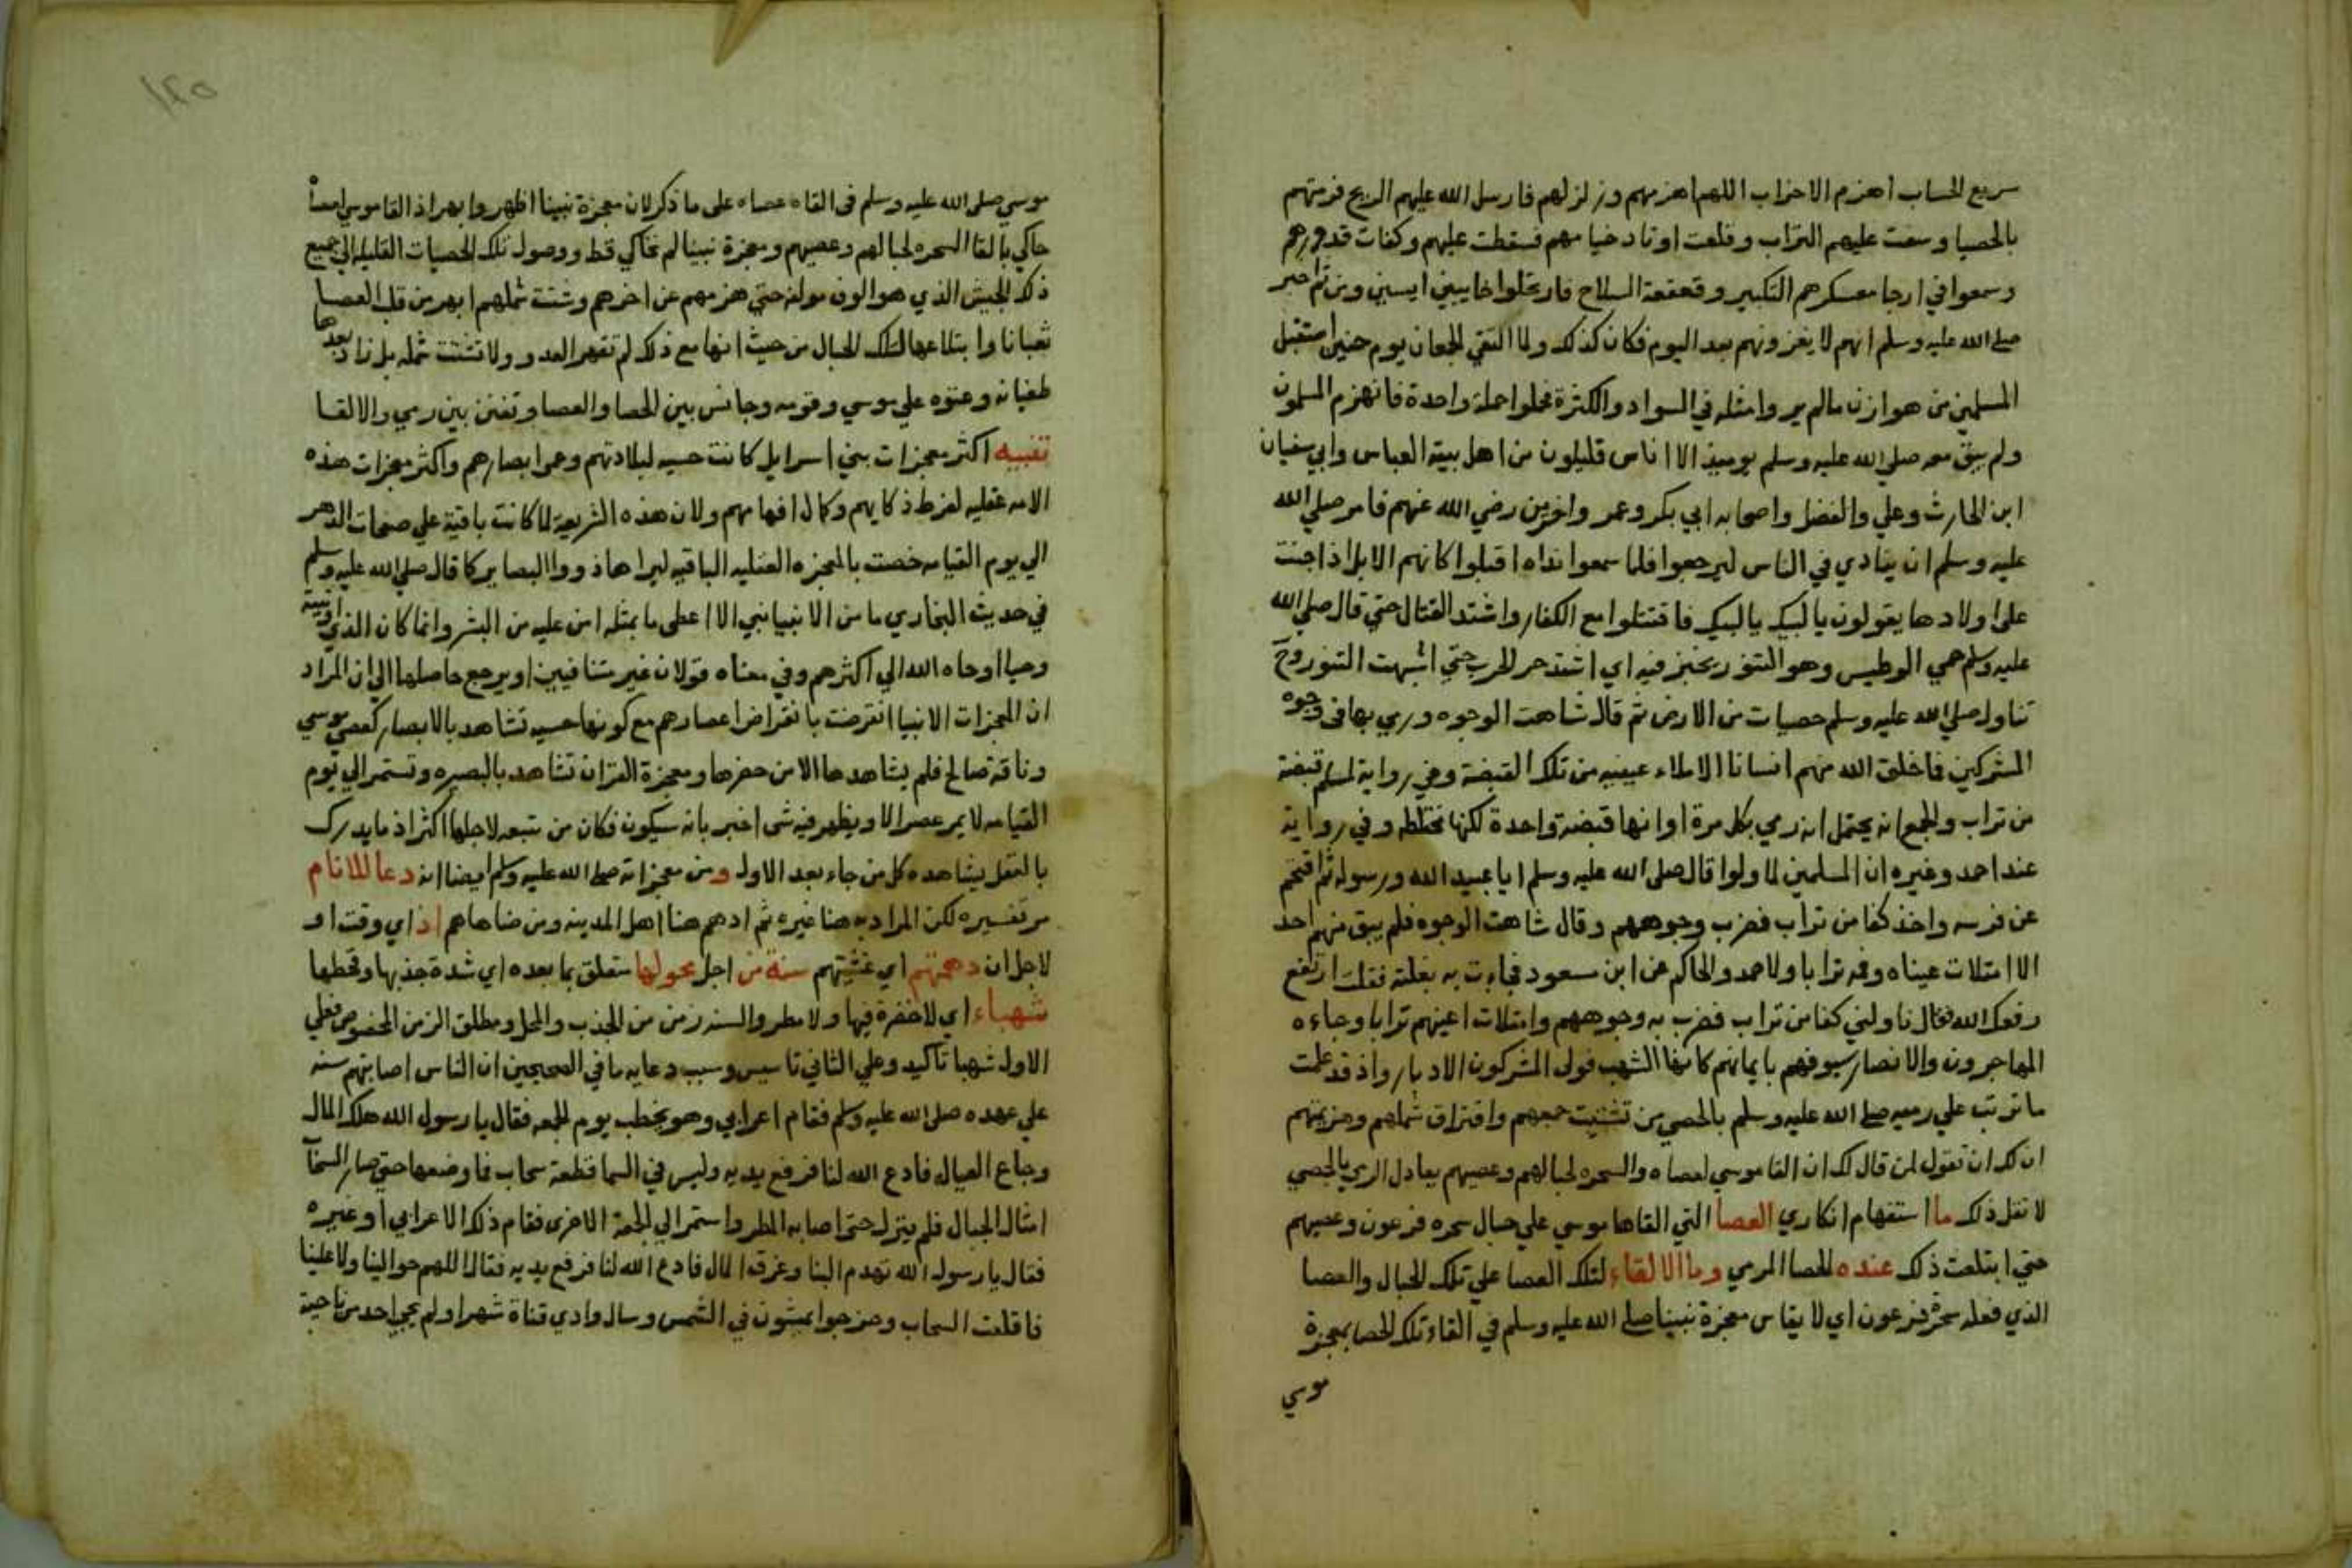 سريع الحساب اهزم الاحزاب اللهم اهزمهم وزلزلهم فارسل الله عليهم الريح فرمتهم
بالحصبا وسفت عليهم التراب وقلعت اوتاد خيامهم فسقطت عليهم وكفات قدورهم
وسمعوا في ارجا معسكرهم التكبير وقعقعة السلاح فارتحلوا خايبين ايسين ومن ثم اخبر
صلى الله عليه وسلم انهم لا يغزونهم بعد اليوم فكان كذلك ولما التقي الجمعان يوم حنين استقبل
المسلمين من هوازن مالم يروا مثله في السواد والكثرة فحملوا حملة واحدة فانهزم المسلمون
ولم يبق معه صلي الله عليه وسلم يوميذ الا اناس قليلون من اهل بيته العباس وابي سفيان
ابن الحارث وعلي والفضل واصحابه ابي بكر وعمر واخرين رضي الله عنهم فامر صلي الله
عليه وسلم ان ينادي في الناس ليرجعوا فلما سمعوا نداه اقبلوا كانهم الابل اذا حنت
على اولادها يقولون يالبيك يالبيك فاقتتلوا مع الكفار واشتد القتال حتي قال صلي الله
عليه وسلم حمي الوطيس وهو التنور يخبز فيه اي اشتد حر الحرب حتي اشبهت التنور وح
تناول صلي الله عليه وسلم حصيات من الارض ثم قال شاهت الوجوه ورمي بها في وجوه
المشركين فاخلق الله منهم انسانا الا ملاء عينيه من تلك القبضة وفي رواية لمسلم قبضة
من تراب والجمع انه يحتمل انه رمي بكل مرة او انها قبضة واحدة لكنها مختلطه وفي رواية
عند احمد وغيره ان المسلمين لما ولوا قال صلى الله عليه وسلم ايا عبيد الله ورسوله ثم اقتحم
عن فرسه واخذ كفا من تراب فضرب وجوههم وقال شاهت الوجوه فلم يبق منهم احد
الا امتلات عيناه وفمه ترابا ولاحمد والحاكم عن ابن مسعود فجاءت به بغلته فقلت ارتفع
رفعك الله فقال ناولني كفا من تراب فضرب به وجوههم وامتلات اعينهم ترابا وجاءه
المهاجرون والانصار سيوفهم بايمانهم كانها الشهب فولى المشركون الادبار واذ قد علمت
ما ترتب علي رميه صلي الله عليه وسلم بالحصي من تشتيت جمعهم وافتراق شملهم وهزيمتهم
ان لك ان تقول لمن قال لك ان القا موسي لعصاه والسحره لحبالهم وعصيهم يعادل الرمي بالحصي
لا تقل ذلك ما استفهام انكاري العصا التي القاها موسي علي حبال سحره فرعون وعصيهم
حتي ابتلعت ذلك عنده للحصا المرمي وما الالقاء لتلك العصا علي تلك الحبال والعصا
الذي فعله سحرة فرعون اي لا يقاس معجزة نبينا صلي الله عليه وسلم في القاء تلك الحصا بمعجزة
موسي
١٤٥
موسي صلى الله عليه وسلم في القاه عصاه على ما ذكر لان معجزة نبينا اظهر وابهر اذ القا موسي لعصاه
حاكي بالقا السحره لحبالهم وعصيهم ومعجزة نبينا لم تحاكي قط ووصول تلك الحصيات القليله الي جميع
ذلك الجيش الذي هو الوف مولفه حتي هزمهم عن اخرهم وشتت شملهم ابهر من قلب العصا
ثعبانا وابتلاعها لتلك الحبال من حيث انها مع ذلك لم تقهر العدو ولا تشتت شمله بل زاد بعدها
طغيانه وعتوه علي موسي وقومه وجانس بين الحصا والعصا وتفنن بين رمي والالقا
تنبيه اكثر معجزات بني اسرايل كانت حسيه لبلادتهم وعمو ابصارهم واكثر معجزات هذه
الامه عقليه لفرط ذكايهم وكمال افهامهم ولان هذه الشريعة لما كانت باقية علي صفحات الدهر
الي يوم القيامه خصت بالمعجزه العقليه الباقيه ليراها ذووا البصاير كما قال صلي الله عليه وسلم
في حديث البخاري ما من الانبيا نبي الا اعطى ما بمثله امن عليه من البشر وانما كان الذي اوتيته
وحيا اوحاه الله الي اكثرهم وفي معناه قولان غير متنافيين اويرجع حاصلها الي ان المراد
ان المعجزات الانبيا انقرضت بانقراض اعصارهم مع كونها حسيه تشاهد بالابصار كعصي موسي
وناقة صالح فلم يشاهدها الا من حضرها ومعجزة القران تشاهد بالبصيره وتستمر الي يوم
القيامه لا يمر عصر الا ويظهر فيه شي اخبر بانه سيكون فكان من يتبعه لاجلها اكثر اذ ما يدرك
بالعقل يشاهده كل من جاء بعد الاول ومن معجزاته صلي الله عليه وسلم ايضا انه دعا للانام
مر تفسيره لكن المراد به هنا غيره ثم ادهم هنا اهل المدينه ومن ضاهاهم اذ اي وقت او
لاجل ان دهمتهم اي غشيتهم سنة من اجل محولها متعلق بما بعده اي شدة جذبها وقحطها
شهباء اي لا خضرة فيها ولا مطر والسنه زمن من الجذب والمحل ومطلق الزمن المخصوص فعلي
الاول شهبا تاكيد وعلي الثاني تاسيس وسبب دعايه ما في الصحيحين ان الناس اصابتهم سنه
علي عهده صلي الله عليه وسلم فقام اعرابي وهو يخطب يوم الجمعه فقال يا رسول الله هلك المال
وجاع العيال فادع الله لنا فرفع يديه وليس في السما قطعة سحاب فما وضعها حتي صار السحاب
امثال الجبال فلم ينزل حتى اصابه المطر واستمر الي الجمعة الاخرى فقام ذلك الاعرابي او غيره
فقال يا رسول الله تهدم البنا وغرق المال فادع الله لنا فرفع يديه فقال اللهم حوالينا ولا علينا
فاقلعت السحاب وخرجوا يمشون في الشمس وسال وادي قناة شهرا ولم يجي احد من ناحية